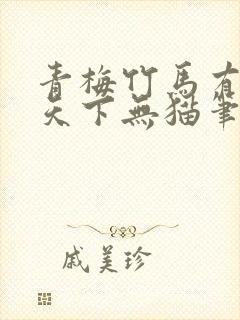 青梅竹馬有
天下無貓筆
戚美珍